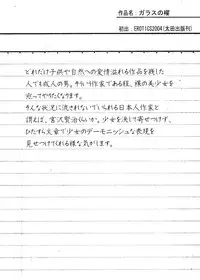 作品名：ガラスの檻
初出：EROTICS2004（太田出版刊）
どれだけ子供や自然への愛情溢れる作品を残した
人でも成人の男。それが作家である様、裸の美少女を
巡ってやりたくなります。
そんな状況に流されないでいられる日本人作家と
謂えば、宮沢賢治くらいか。少女を決して寄せつけず、
ひたすら文章で少女のデーモニッシュな表現を
見せつけてくれる様な気がします。